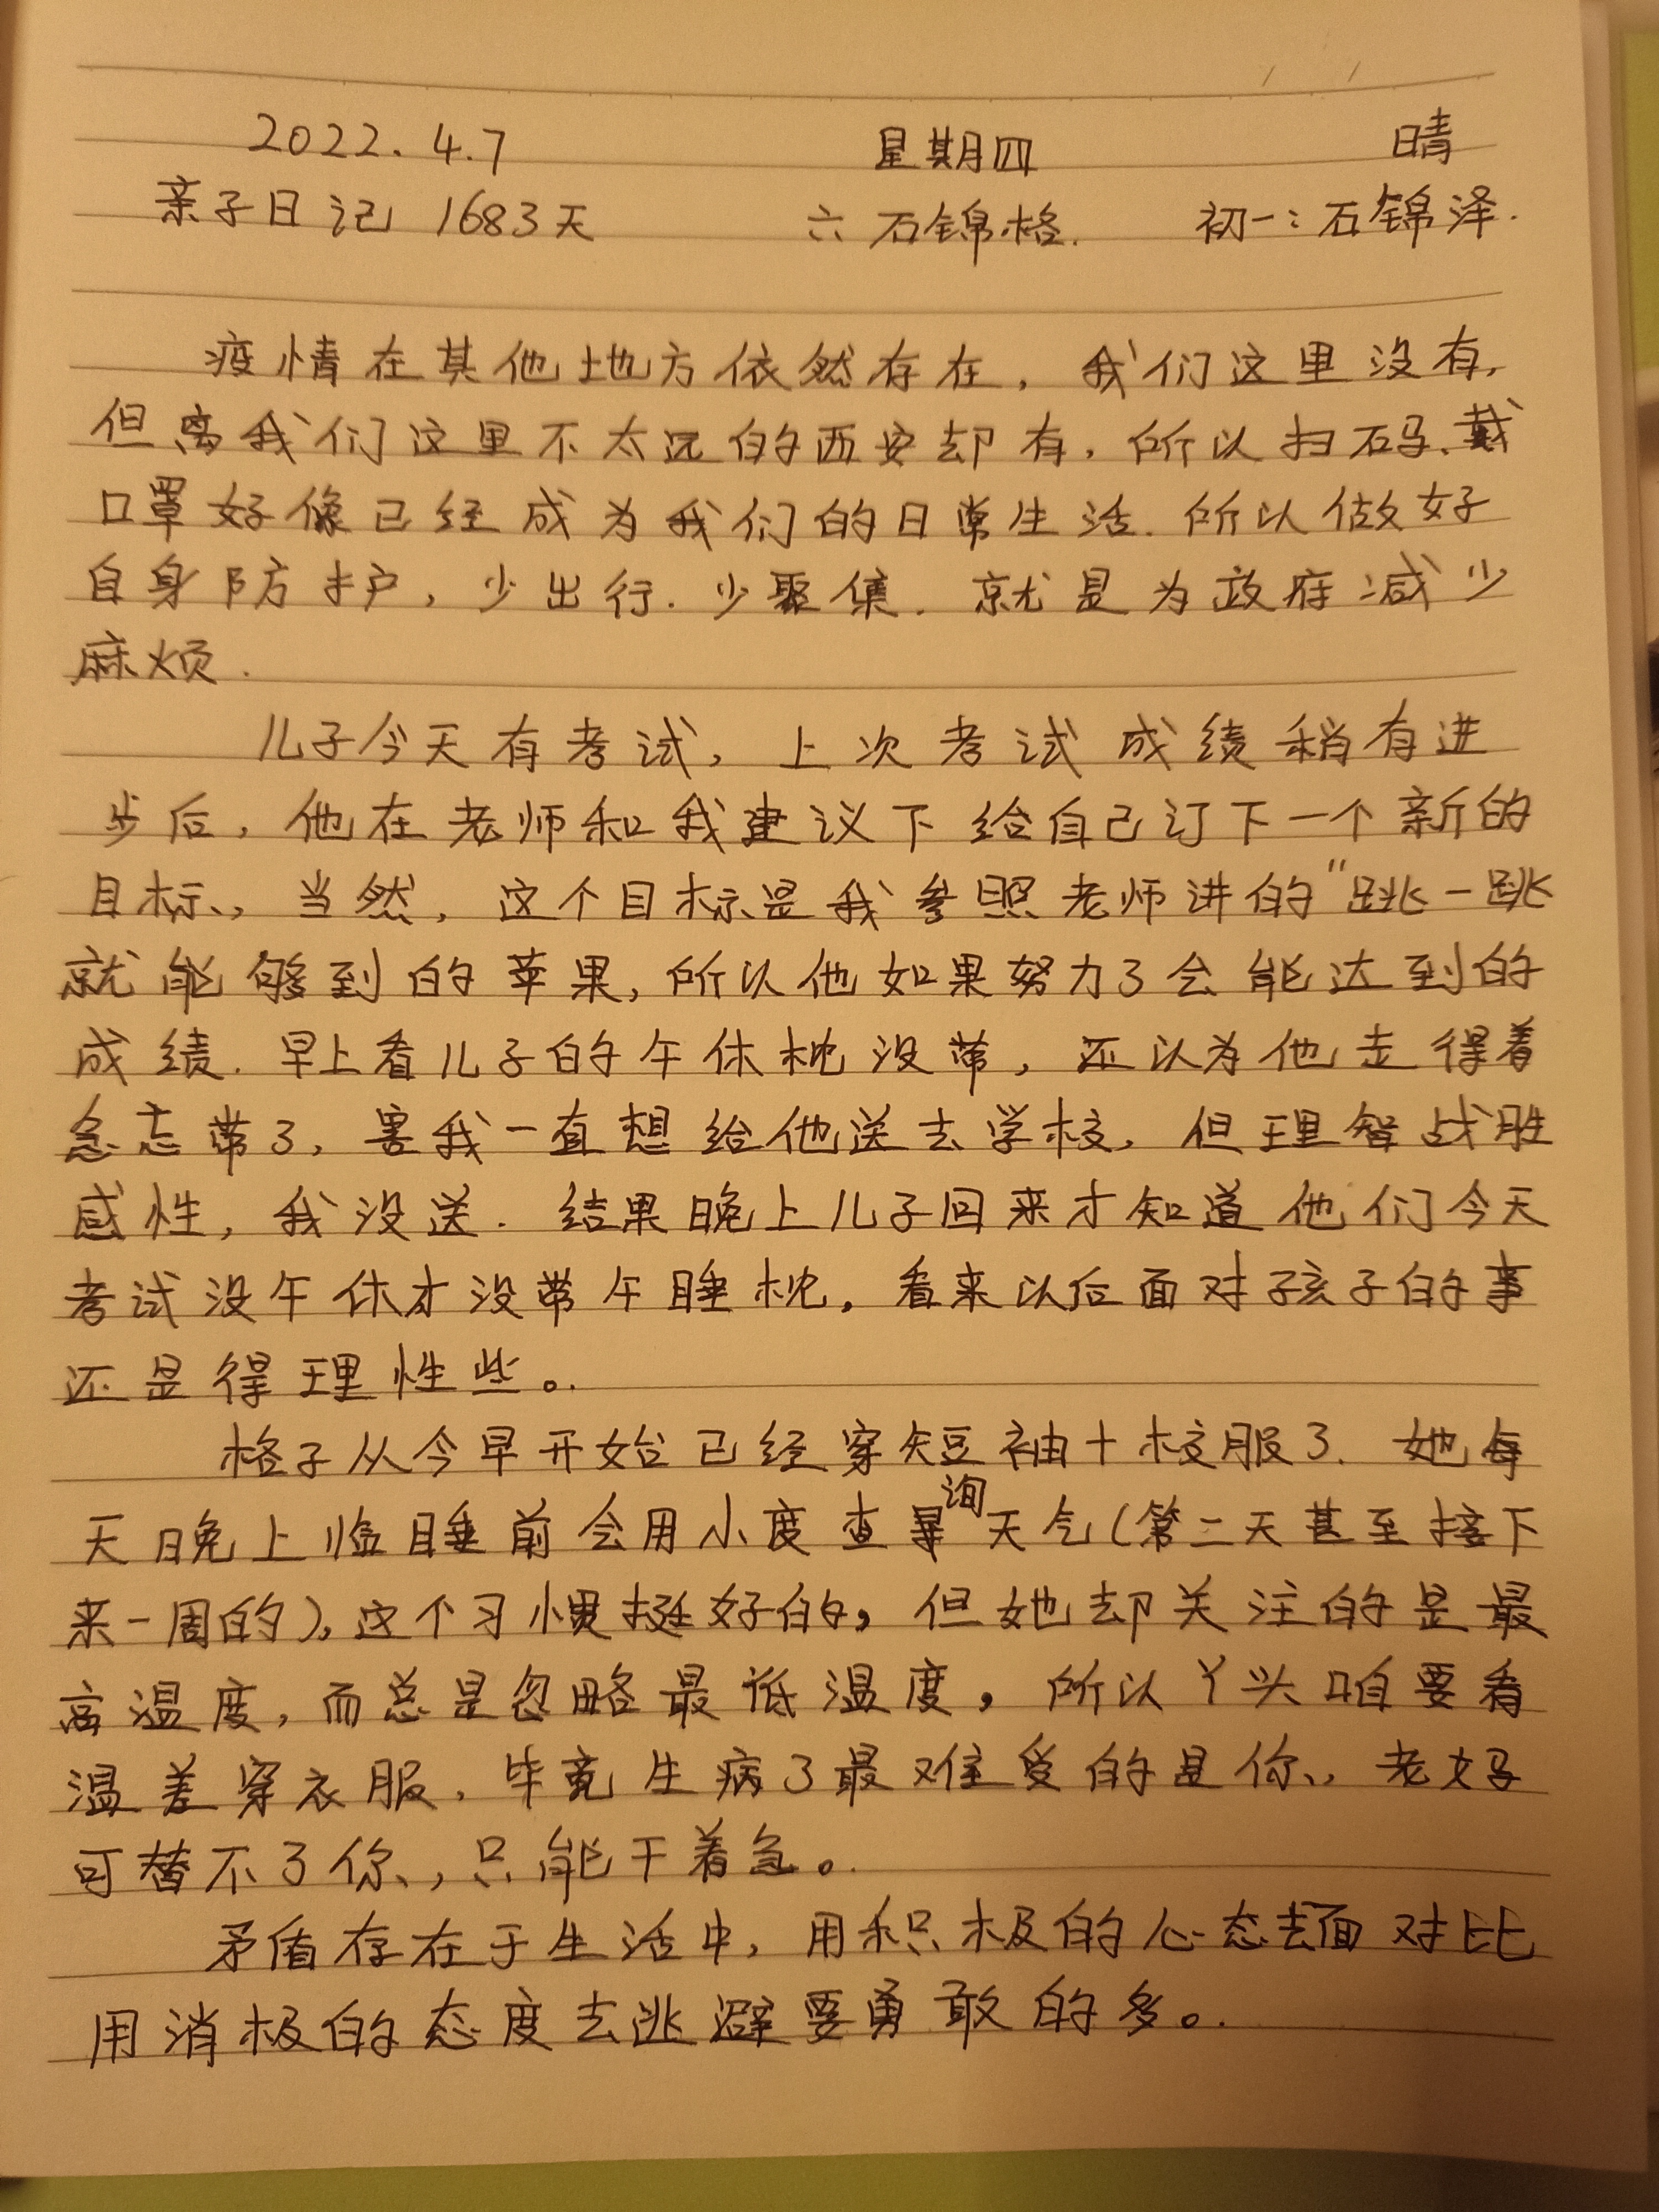 2022.4.7 星期四 晴
亲子日记 1683天 六 石锦格. 初一:石锦泽.
疫情在其他地方依然存在,我们这里没有,
但离我们这里不太远的西安却有,所以扫码、戴
口罩好像已经成为我们的日常生活.所以做好
自身防护,少出行.少聚集.就是为政府减少
麻烦.
儿子今天有考试,上次考试成绩稍有进
步后,他在老师和我建议下给自己订下一个新的
目标,当然,这个目标是我参照老师讲的“跳一跳
就能够到的苹果,所以他如果努力了会能达到的
成绩.早上看儿子的午休枕没带,还以为他走得着
急忘带了,害我一直想给他送去学校,但理智战胜
感性,我没送.结果晚上儿子回来才知道他们今天
考试没午休才没带午睡枕,看来以后面对孩子的事
还是得理性些。
格子从今早开始已经穿短袖+校服了.她每
天晚上临睡前会用小度查询天气(第二天甚至接下
来一周的),这个习惯挺好的,但她却关注的是最
高温度,而总是忽略最低温度,所以丫头咱要看
温差穿衣服,毕竟生病了最难受的是你,老妈
可替不了你,只能干着急。
矛盾存在于生活中,用积极的心态去面对比
用消极的态度去逃避要勇敢的多。